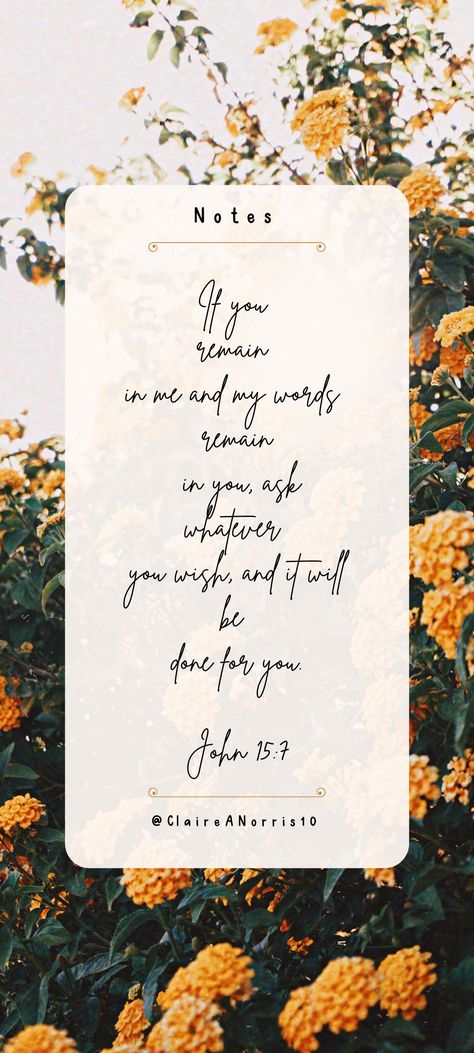 Notes
If you
remain
in me and my words
remain
in you, ask
whatever
you wish, and it will
be
done for you.
John 15:7
@ClaireANorris10